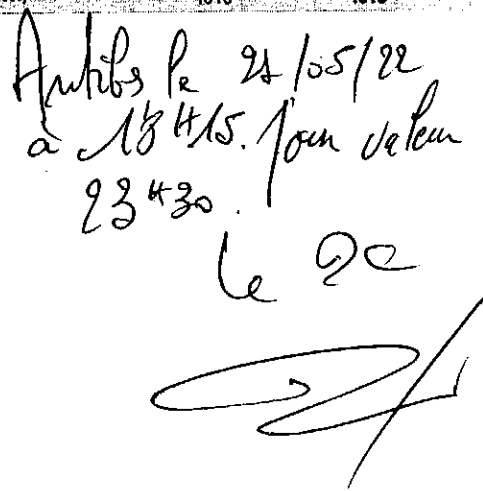 Antibes le 21/05/22
à 18H15. Pour valeur
23H30.
Le DC